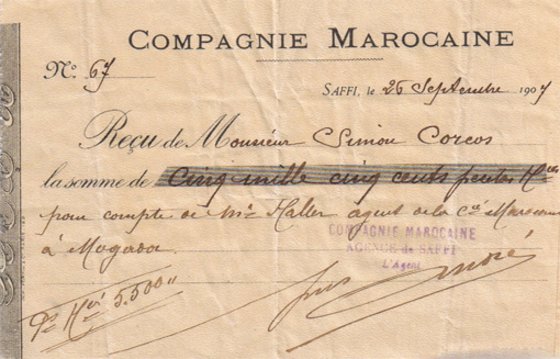 COMPAGNIE MAROCAINE
No. 67
SAFFI, le 26 Septembre 1907
Reçu de Monsieur Simon Corcos
la somme de Cinq mille cinq cents
pour compte de Mr Haller agent de la Cie Marocaine
à Mogador
COMPAGNIE MAROCAINE
AGENCE de SAFFI
L'Agent
5.500"